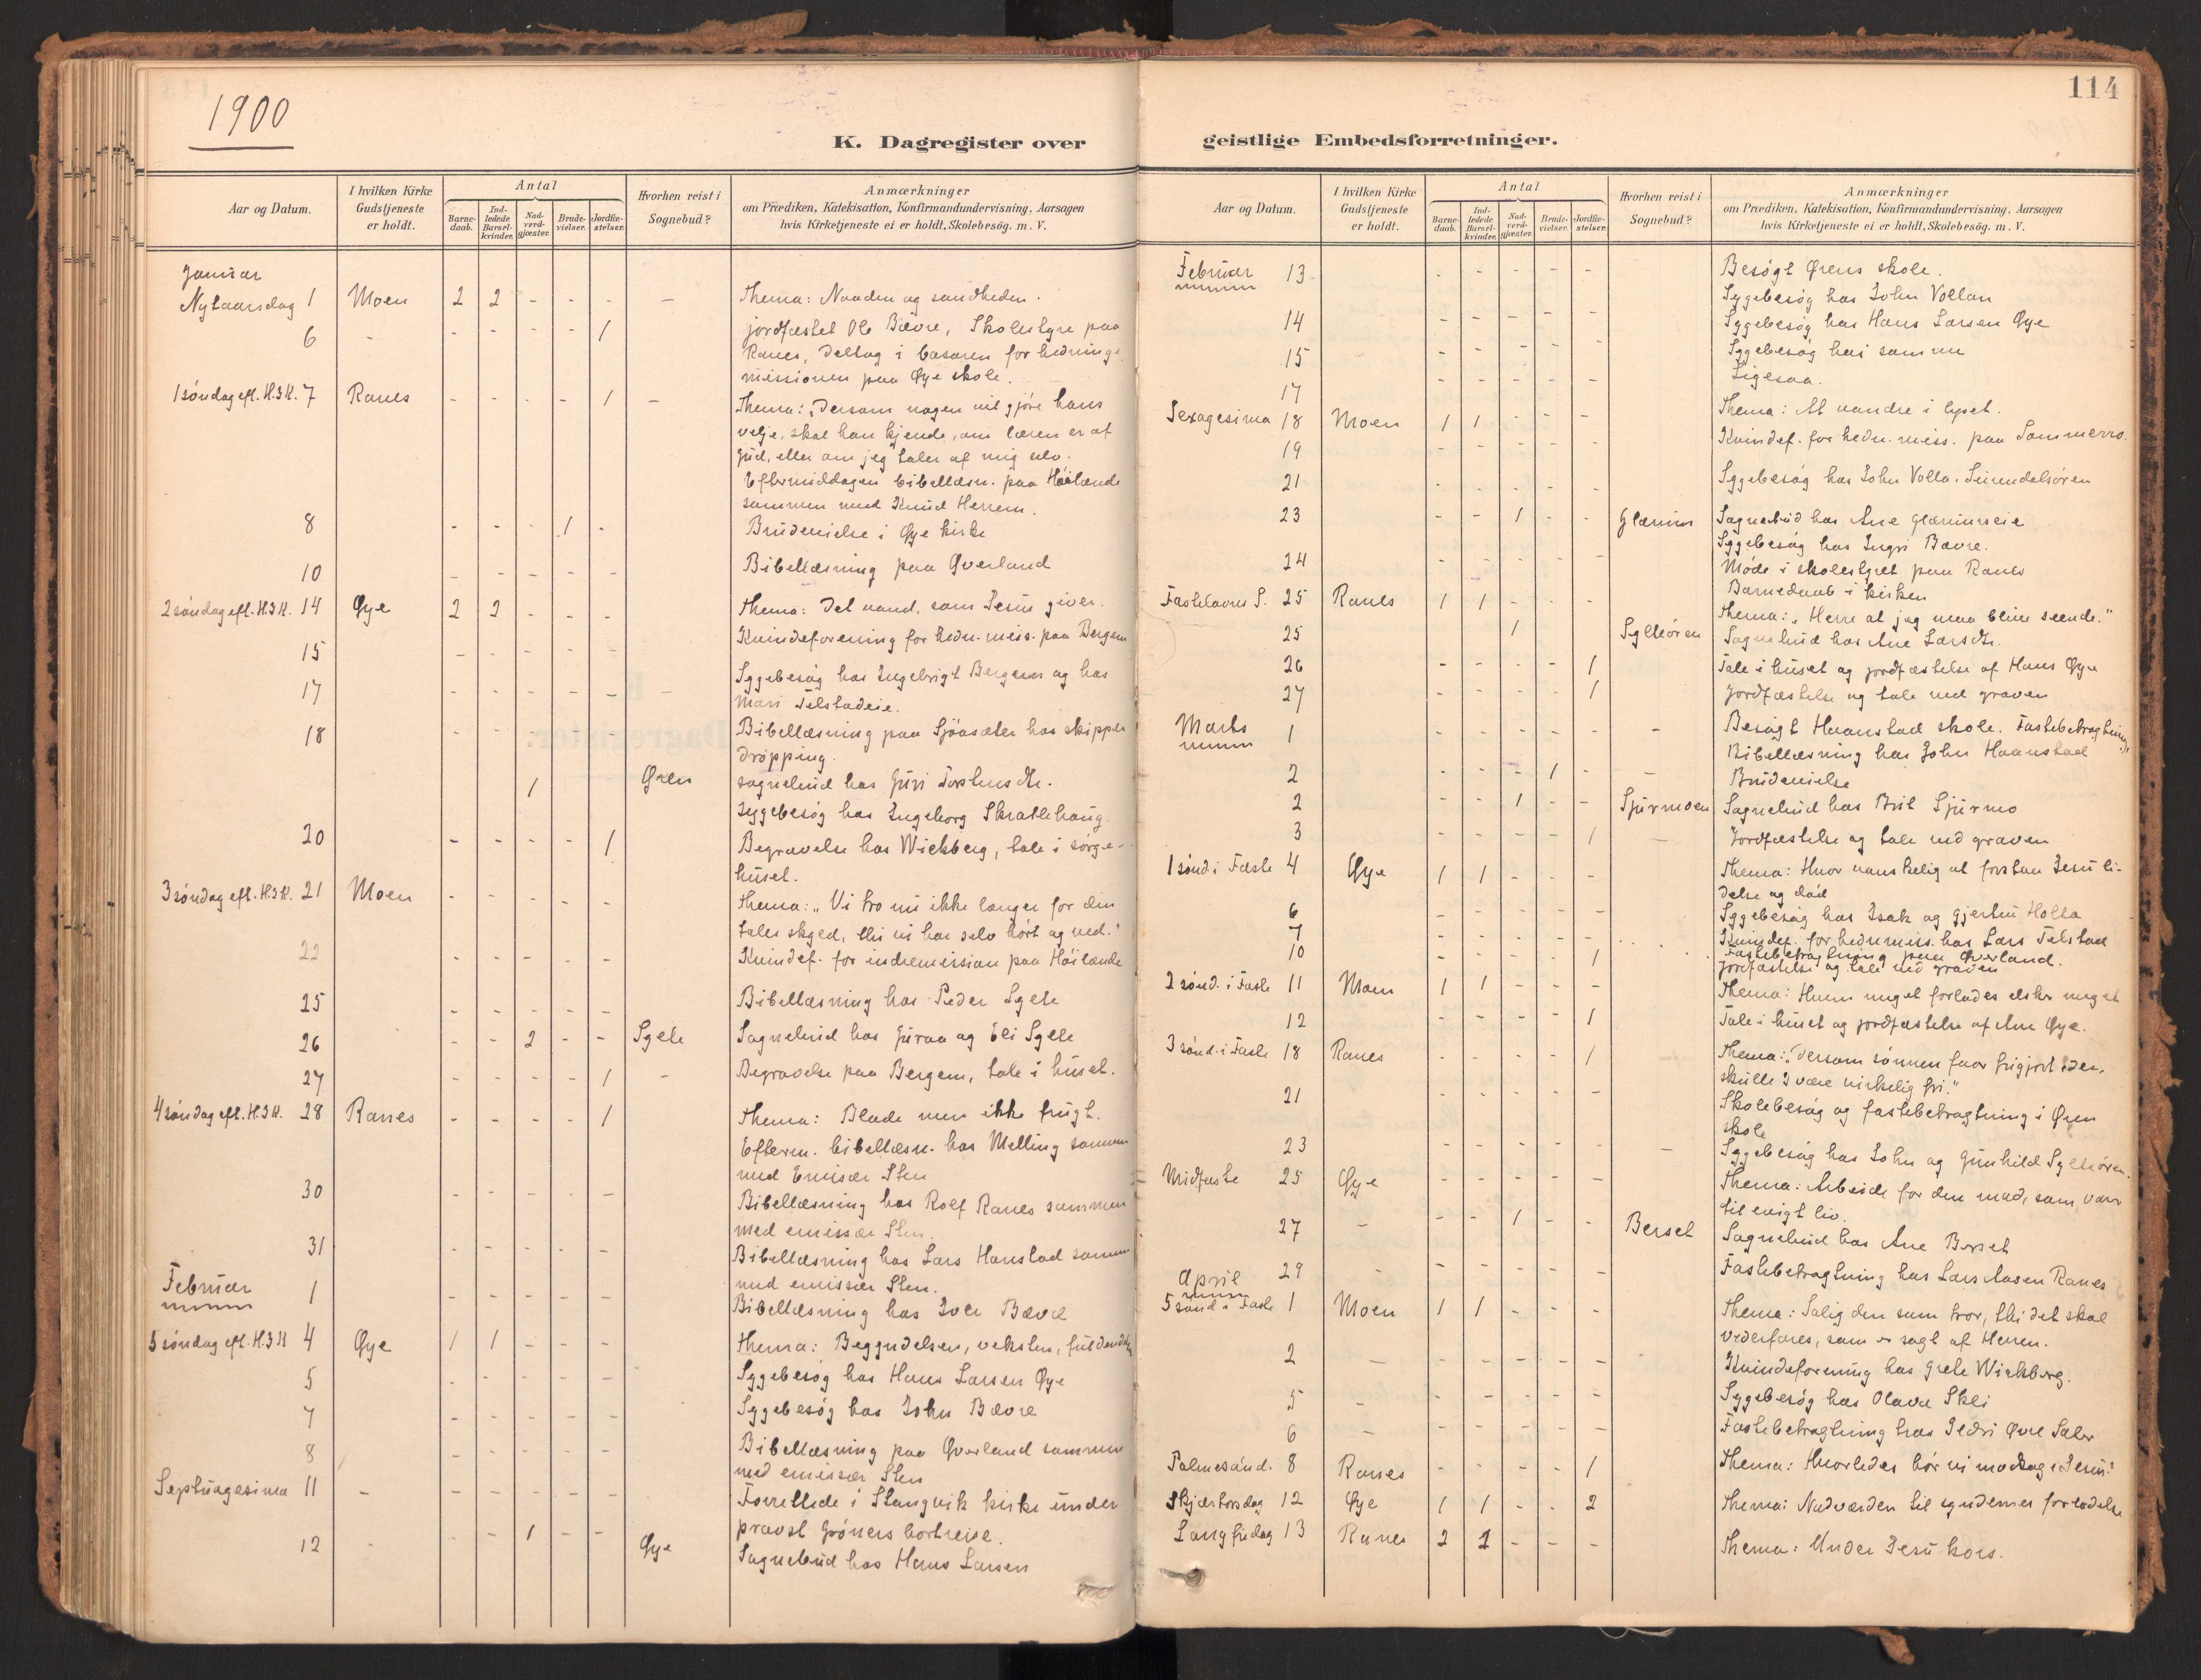 1900
114
K. Dagregister over geistlige Embedsforretninger.
Aar og Datum. I hvilken Kirke Gudstjeneste er holdt. Antal Barnedaab. Indledede Barselkvinder. Nadverdgjæster. Brudevielser. Jordfæstelser. Hvorhen reist i Sognebud? Anmærkninger om Prædiken, Katekisation, Konfirmandundervisning. Aarsagen hvis Kirketjeneste ei er holdt, Skolebesøg. m. V.
Januar
Nytaarsdag 1 Moen 2 2 - - - - Thema: Naaden og sandheden.
6 - - - - - 1 jordfæstet Ole Bævre, Skolestyre paa
Ranes, deltag i basaren for hednings-
missionen paa Øye skole.
1 søndag eft. H.3K. 7 Ranes - - - - 1 - Thema: "Dersom nogen vil gjøre hans
velje, skal han kjende, om læren er af
Gud, eller om jeg taler af mig selv.
Eftermiddagen bibellæsn. paa Høilande
sammen med Knud Herrem.
8 - - - 1 - Brudevielse i Øye kirke
10 - - - - - Bibellæsning paa Qverland
2 søndag eft. H.3K. 14 Øye 2 2 - - - Thema: Det vand, som Jesus giver.
15 - - - - - Kvindeforening for hedn. mis. paa Bergem
17 - - - - - - Sygebesøg hos Ingebrigt Bergem og hos
Mari Telstadeie.
18 - - - Bibellæsning paa Sjøasæter hos skipper
Drøpping.
1 Øren sognebud hos Guri Torstensdtr.
sygebesøg hos Ingeborg Skrattehaug.
20 - - - - 1 Begravelse hos Wickberg, tale i sørge-
huset.
3 søndag eft. H.3K. 21 Moen - - - - - Thema: "Vi tro nu ikke længer for din
Tales skyld, thi vi har selv hørt og ved."
22 - - - - - Kvindef. for indremission paa Høilande
25 - - - - - Bibellæsning hos Peder Sylte
26 - - 2 - - Sylte Sognebud hos Guroa og Eli Sylte
27 - - - - 1 - Begravelse paa Bergem, tale i huset.
4 søndag eft. H.3K. 28 Ranes - - - - 1 Thema: Blade men ikke frugt.
Efterm. bibellæsn. hos Melling sammen
med Emisær Sten
30 - - - - - Bibellæsning hos Rolf Ranes sammen
med emissær Sten.
31 - - - - - Bibellæsning hos Lars Hanstad sammen
med emissær Sten.
Februar
1 - - - - - Bibellæsning hos Iver Bævre
5 søndag eft. H.3K 4 Øye 1 1 - - - Thema: Begyndelsen, veksten,
5 - - - - - Sygebesøg hos Hans Larsen Øye
7 - - - - - Sygebesøg hos John Bævre
8 - - - - - Bibellæsning paa Qverland sammen
med emissær Sten
Septuagesima 11 - - - - - - Forrettede i Stangvik kirke under
provst Grøners bortreise.
12 - - - 1 - - Øye Sognebud hos Hans Larsen
Aar og Datum. I hvilken Kirke Gudstjeneste er holdt. Antal Barnedaab. Indledede Barselkvinder. Nadverdgjæster. Brudevielser. Jordfæstelser. Hvorhen reist i Sognebud? Anmærkninger om Prædiken, Katekisation, Konfirmandundervisning. Aarsagen hvis Kirketjeneste ei er holdt, Skolebesøg. m. V.
Februar 13 - - - - - Besøgt Ørens skole.
Sygebesøg hos John Vollan
14 - - - - - Sygebesøg hos Hans Larsen Øye
15 - - - - - Sygebesøg hos samme
17 - - - - - Ligesaa.
Sexagesima 18 Moen 1 1 - - - Thema: At vandre i lyset.
19 - - - - - Kvindef. for hedn. miss. paa Sommerro.
21 - - - - - Sygebesøg hos John Volla. Surendalsøren
23 - - 1 - - Glærum Sognebud hos Ane Glærumseie
Sygebesøg hos Ingri Bævre.
24 - - - - - Møde i skolestyret paa Ranes
Barnedaab i kirken
Fastelavns S. 25 Ranes 1 1 - - - Thema: "Herre at jeg maa blive seende."
25 1 Sylteøren Sognebud hos Ane Larsdtr.
26 - - - - 1 Tale i huset og jordfæstelse af Hans Øye
27 - - - - 1 Jordfæstelse og tale ved graven
Marts 1 - - - - - - Besøgt Haanstad skole. Fastebetragtning
Bibellæsning hos John Haanstad
2 - - - 1 - - Brudevielse
2 - - 1 - - Sjurmoen Sognebud hos Brit Sjurmo
3 - - - - 1 - Jordfæstelse og tale ved graven
1 sønd. i Faste 4 Øye 1 1 - - - Thema: Hvor vanskelig at forstaa Jesu li-
delse og død
6 - - - - - Sygebesøg hos Isak og Gjertru Holta
7 - - - - - Kvindef. for hedn miss. hos Lars Telstad
Fastebetragtning paa Qverland.
10 - - - - 1 jordfæstelse og tale ved graven
2 sønd. i Faste 11 Moen 1 1 - - - Thema: Hvem meget forlades elsker meget
12 - - - - 1 Tale i huset og jordfæstelse af Ane Øye.
3 sønd. i Faste 18 Ranes - - - - 1 - Thema: "Dersom sønnen faar frigjort eder,
skulle I være virkelig fri."
21 - - - - - Skolebesøg og fastebetragtning i Øren
skole
23 - - - - - - Sygebesøg hos John og Gunhild Sylteøren
Midfaste 25 Øye - - - - - Thema: Arbeide for den mad, som varer
til evigt liv.
27 - - - 1 - - Berset Sognebud hos Ane Berset
29 - - - - - - Fastebetragtning hos Lars Aasen Ranes
April
5 sønd. i Faste 1 Moen 1 1 - - - Thema: Salig den som tror, thi det skal
vederfares, som er sagt af Herren.
2 - - - - - - Kvindeforening hos Grete Wickberg.
5 - - - - - - Sygebesøg hos Olava Skei
6 - - - - - - Fastebetragtning hos
Palmesønd. 8 Ranes - - - - 1 Thema: Hvorledes bør vi modtage Jesus?
Skjærtorsdag 12 Øye 1 1 - - 2 Thema: Nadverden til syndernes forladelse
Langfredag 13 Ranes 2 2 - - - Thema: Under Jesu kors.